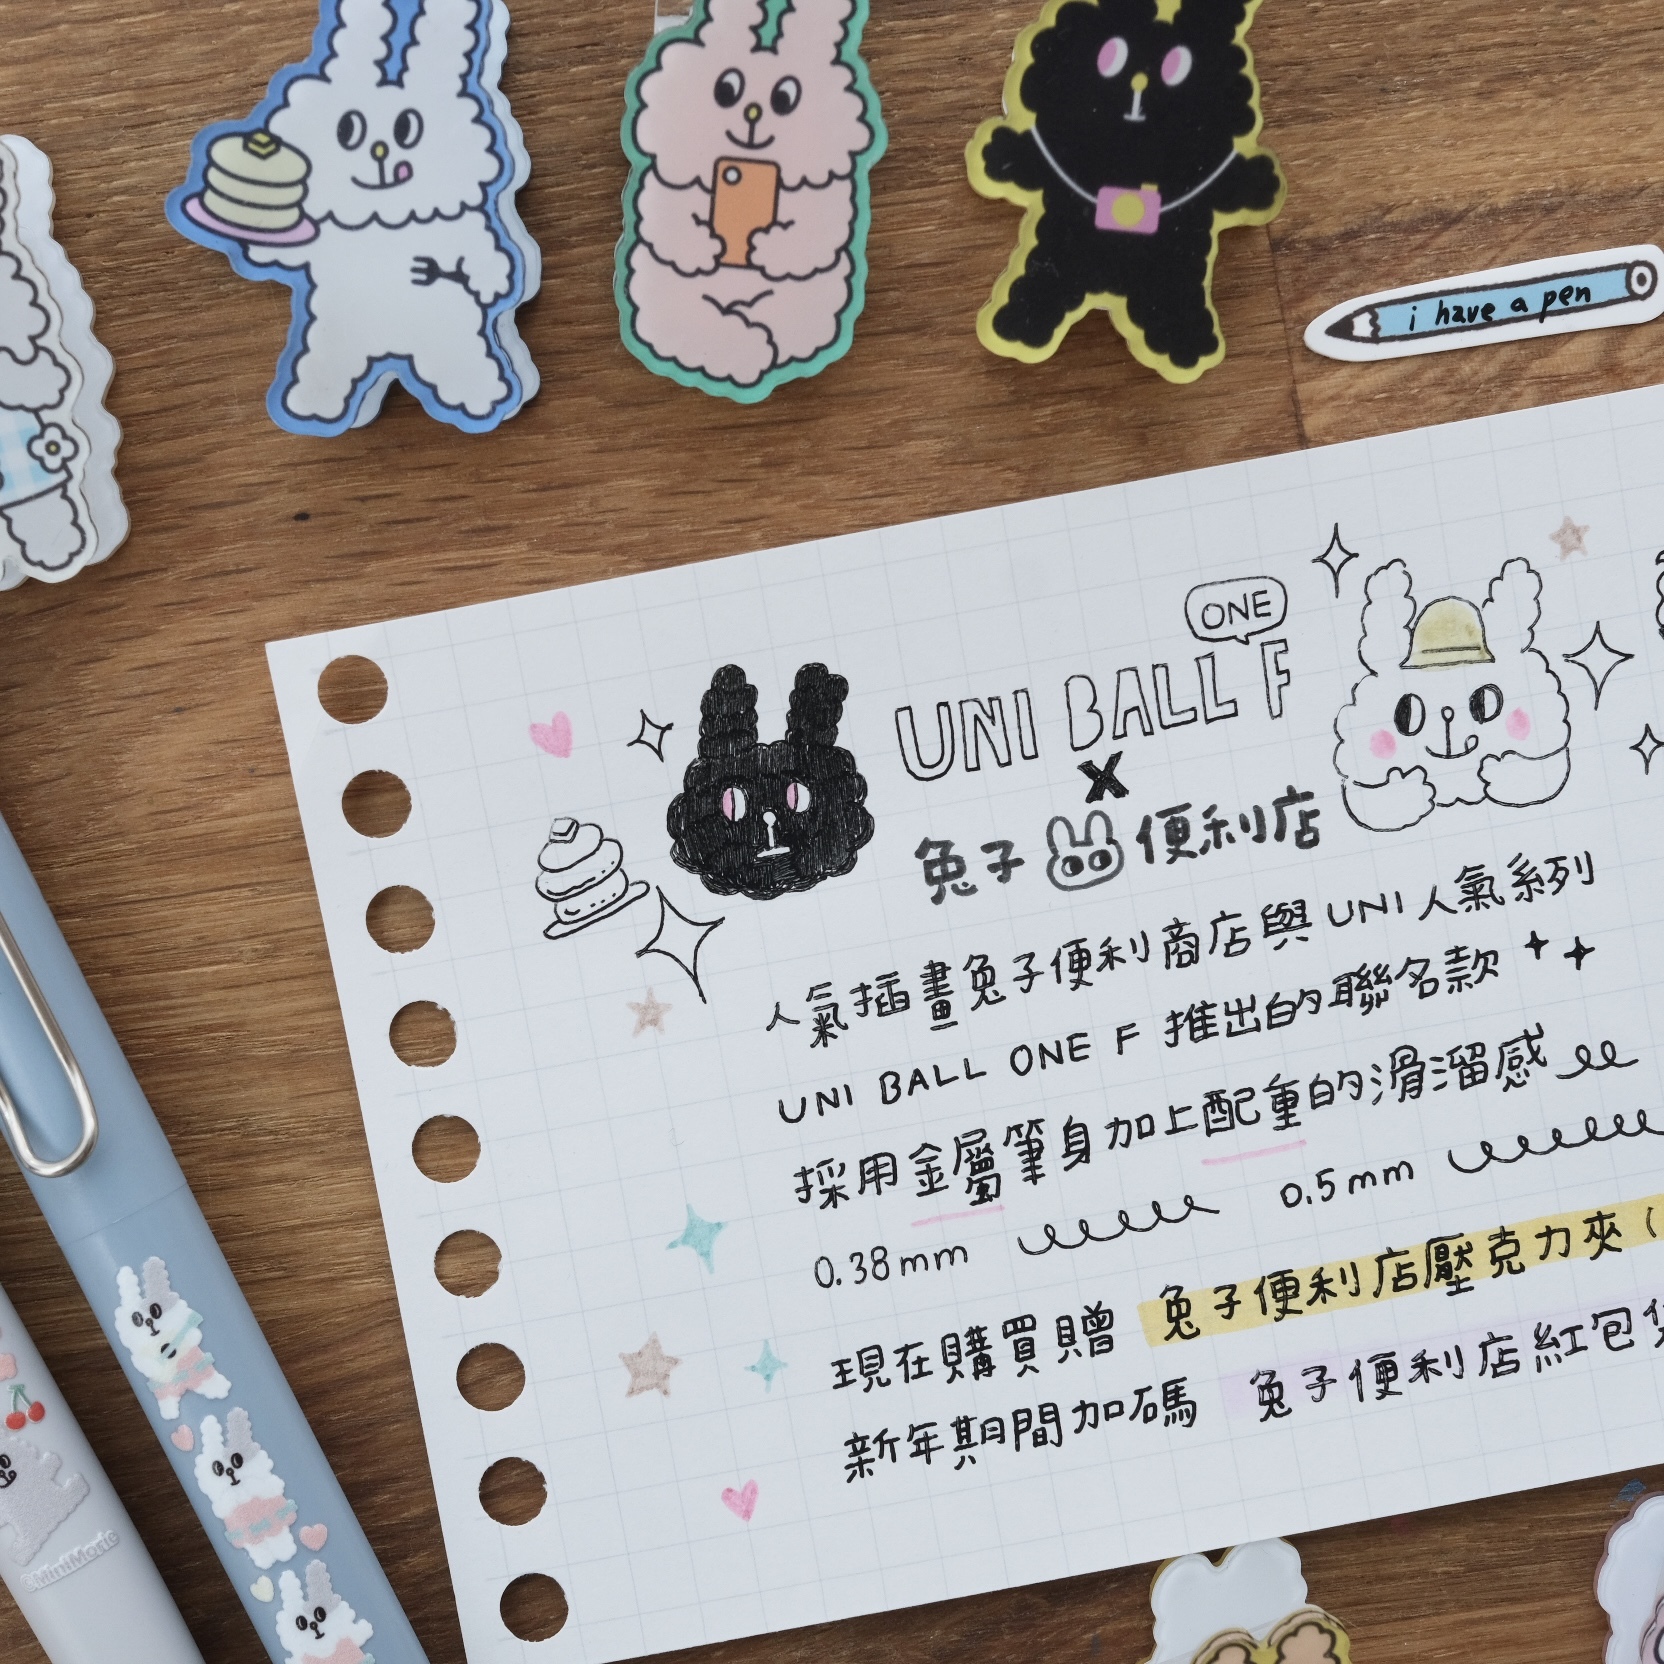 i have a pen
ONE
UNI BALL F
X
兔子 便利店
人氣插畫兔子便利商店與UNI人氣系列
UNI BALL ONE F 推出的聯名款
採用金屬筆身加上配重的滑溜感
0.38mm 0.5mm
現在購買贈 兔子便利店壓克力夾(
新年期間加碼 兔子便利店紅包
©MiniMoris